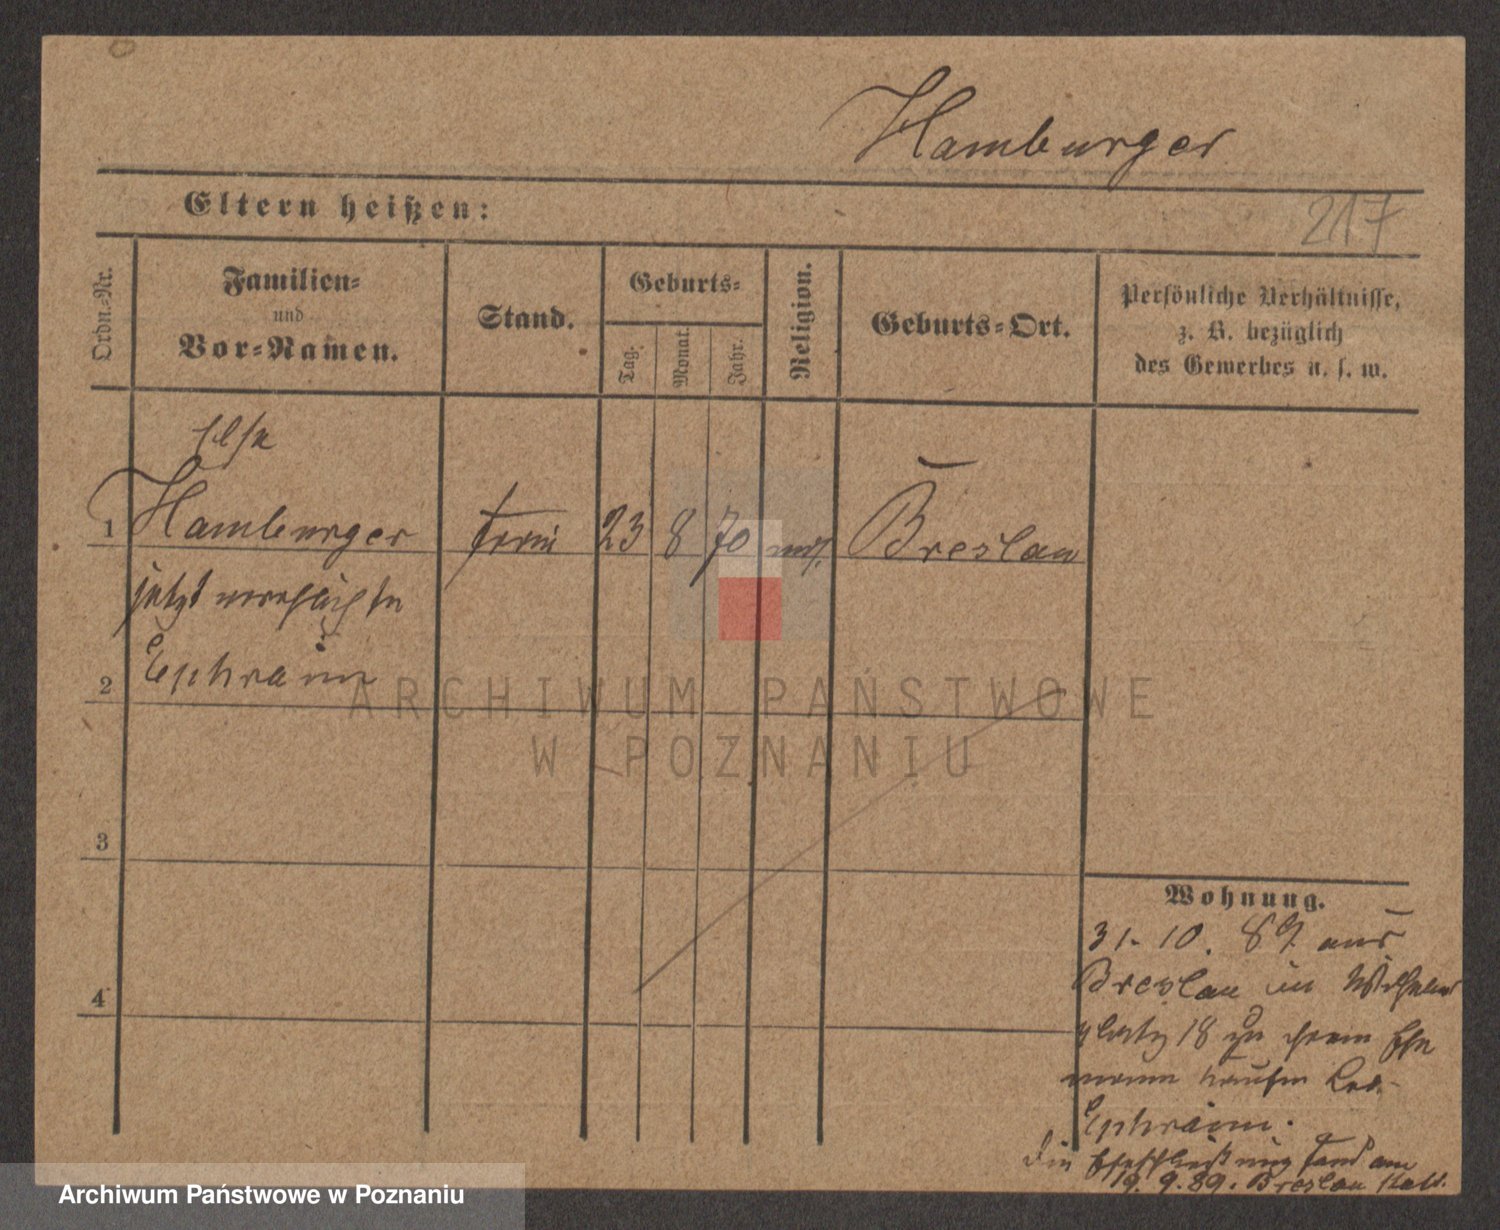 Hamburger
Eltern heißen:
217
Ordn.-Nr.
Familien-
und
Vor-Namen.
Stand.
Geburts-
Tag.
Monat.
Jahr.
Religion.
Geburts-Ort.
Persönliche Verhältnisse,
z. B. bezüglich
des Gewerbes u. s. w.
Else
1 Hamburger 23 8 70 mos. Breslau
jetzt verehelichte
2 Ephraim
3
4
Wohnung.
31. 10. 89 aus
Breslau in Wilhelms
platz 18 zu ihrem Ehe
mann Kaufm
Ephraim.
Die Eheschließung fand am
9. 89. Breslau statt.
ARCHIWUM PAŃSTWOWE
W POZNANIU
Archiwum Państwowe w Poznaniu